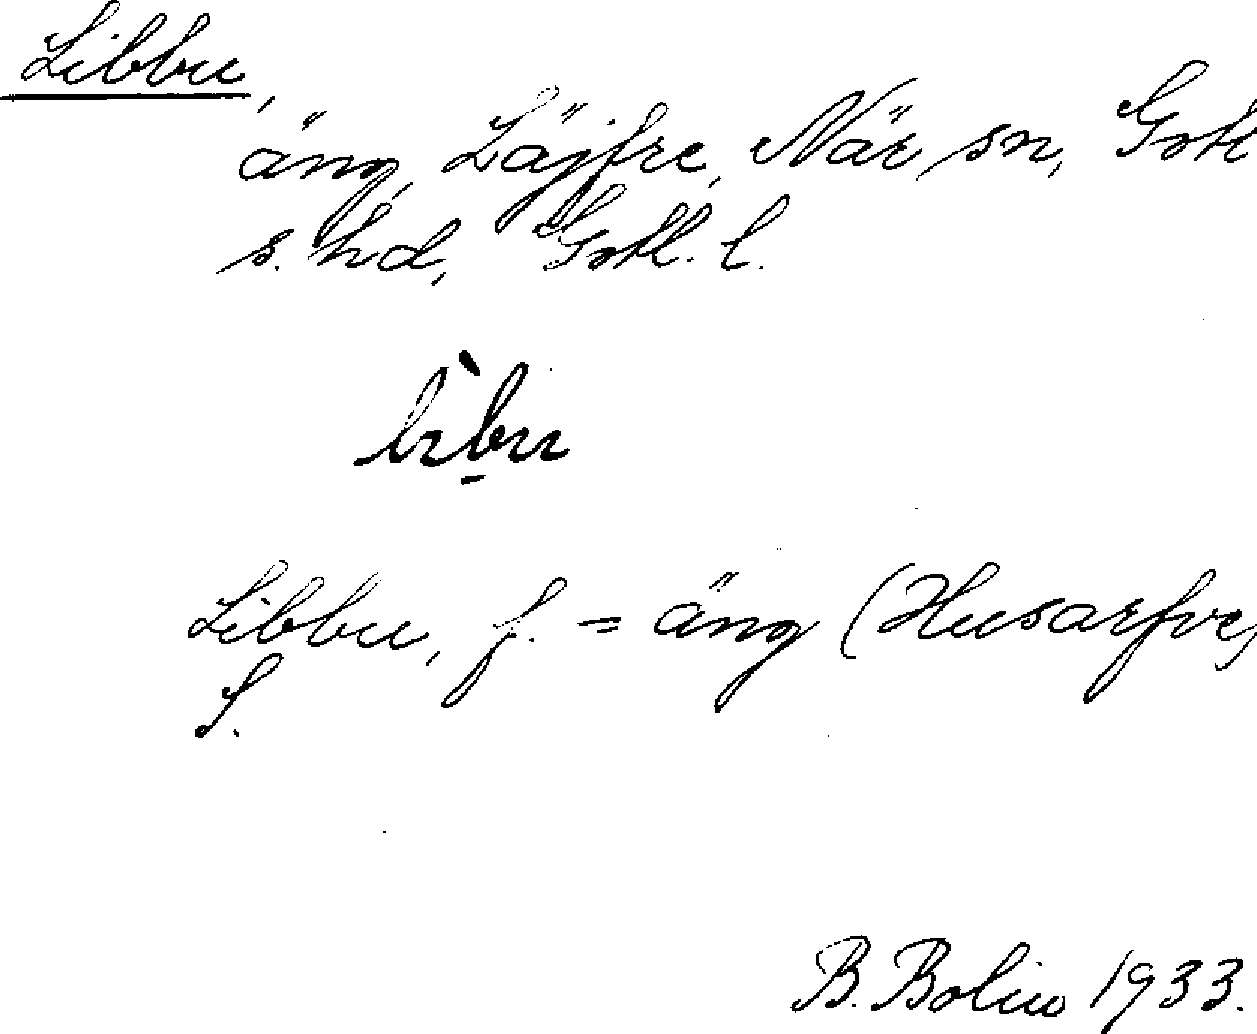 Libbu,
äng, Läjfre, När sn, Gotl
s. hd, Gotl. l.
Libbu, f. = äng (Husarfve,
S.
B. Bolin 1933.